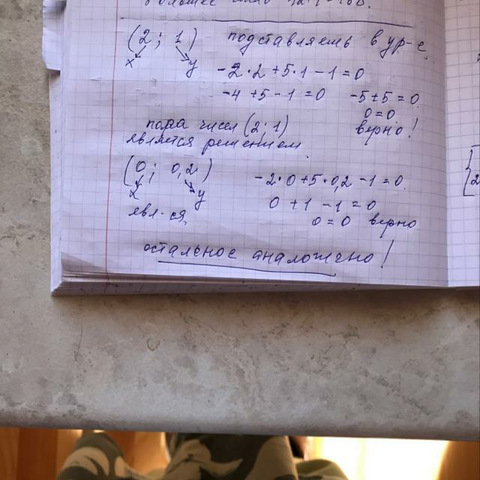 (2; 1) подставляешь в ур-е.
x y
-2·2+5·1-1=0
-4+5-1=0 -5+5=0
0=0
пара чисел (2; 1) верно!
является решением.
(0; 0,2) -2·0+5·0,2-1=0
x y 0+1-1=0
явл-ся, 0=0 верно
остальное аналожечно!